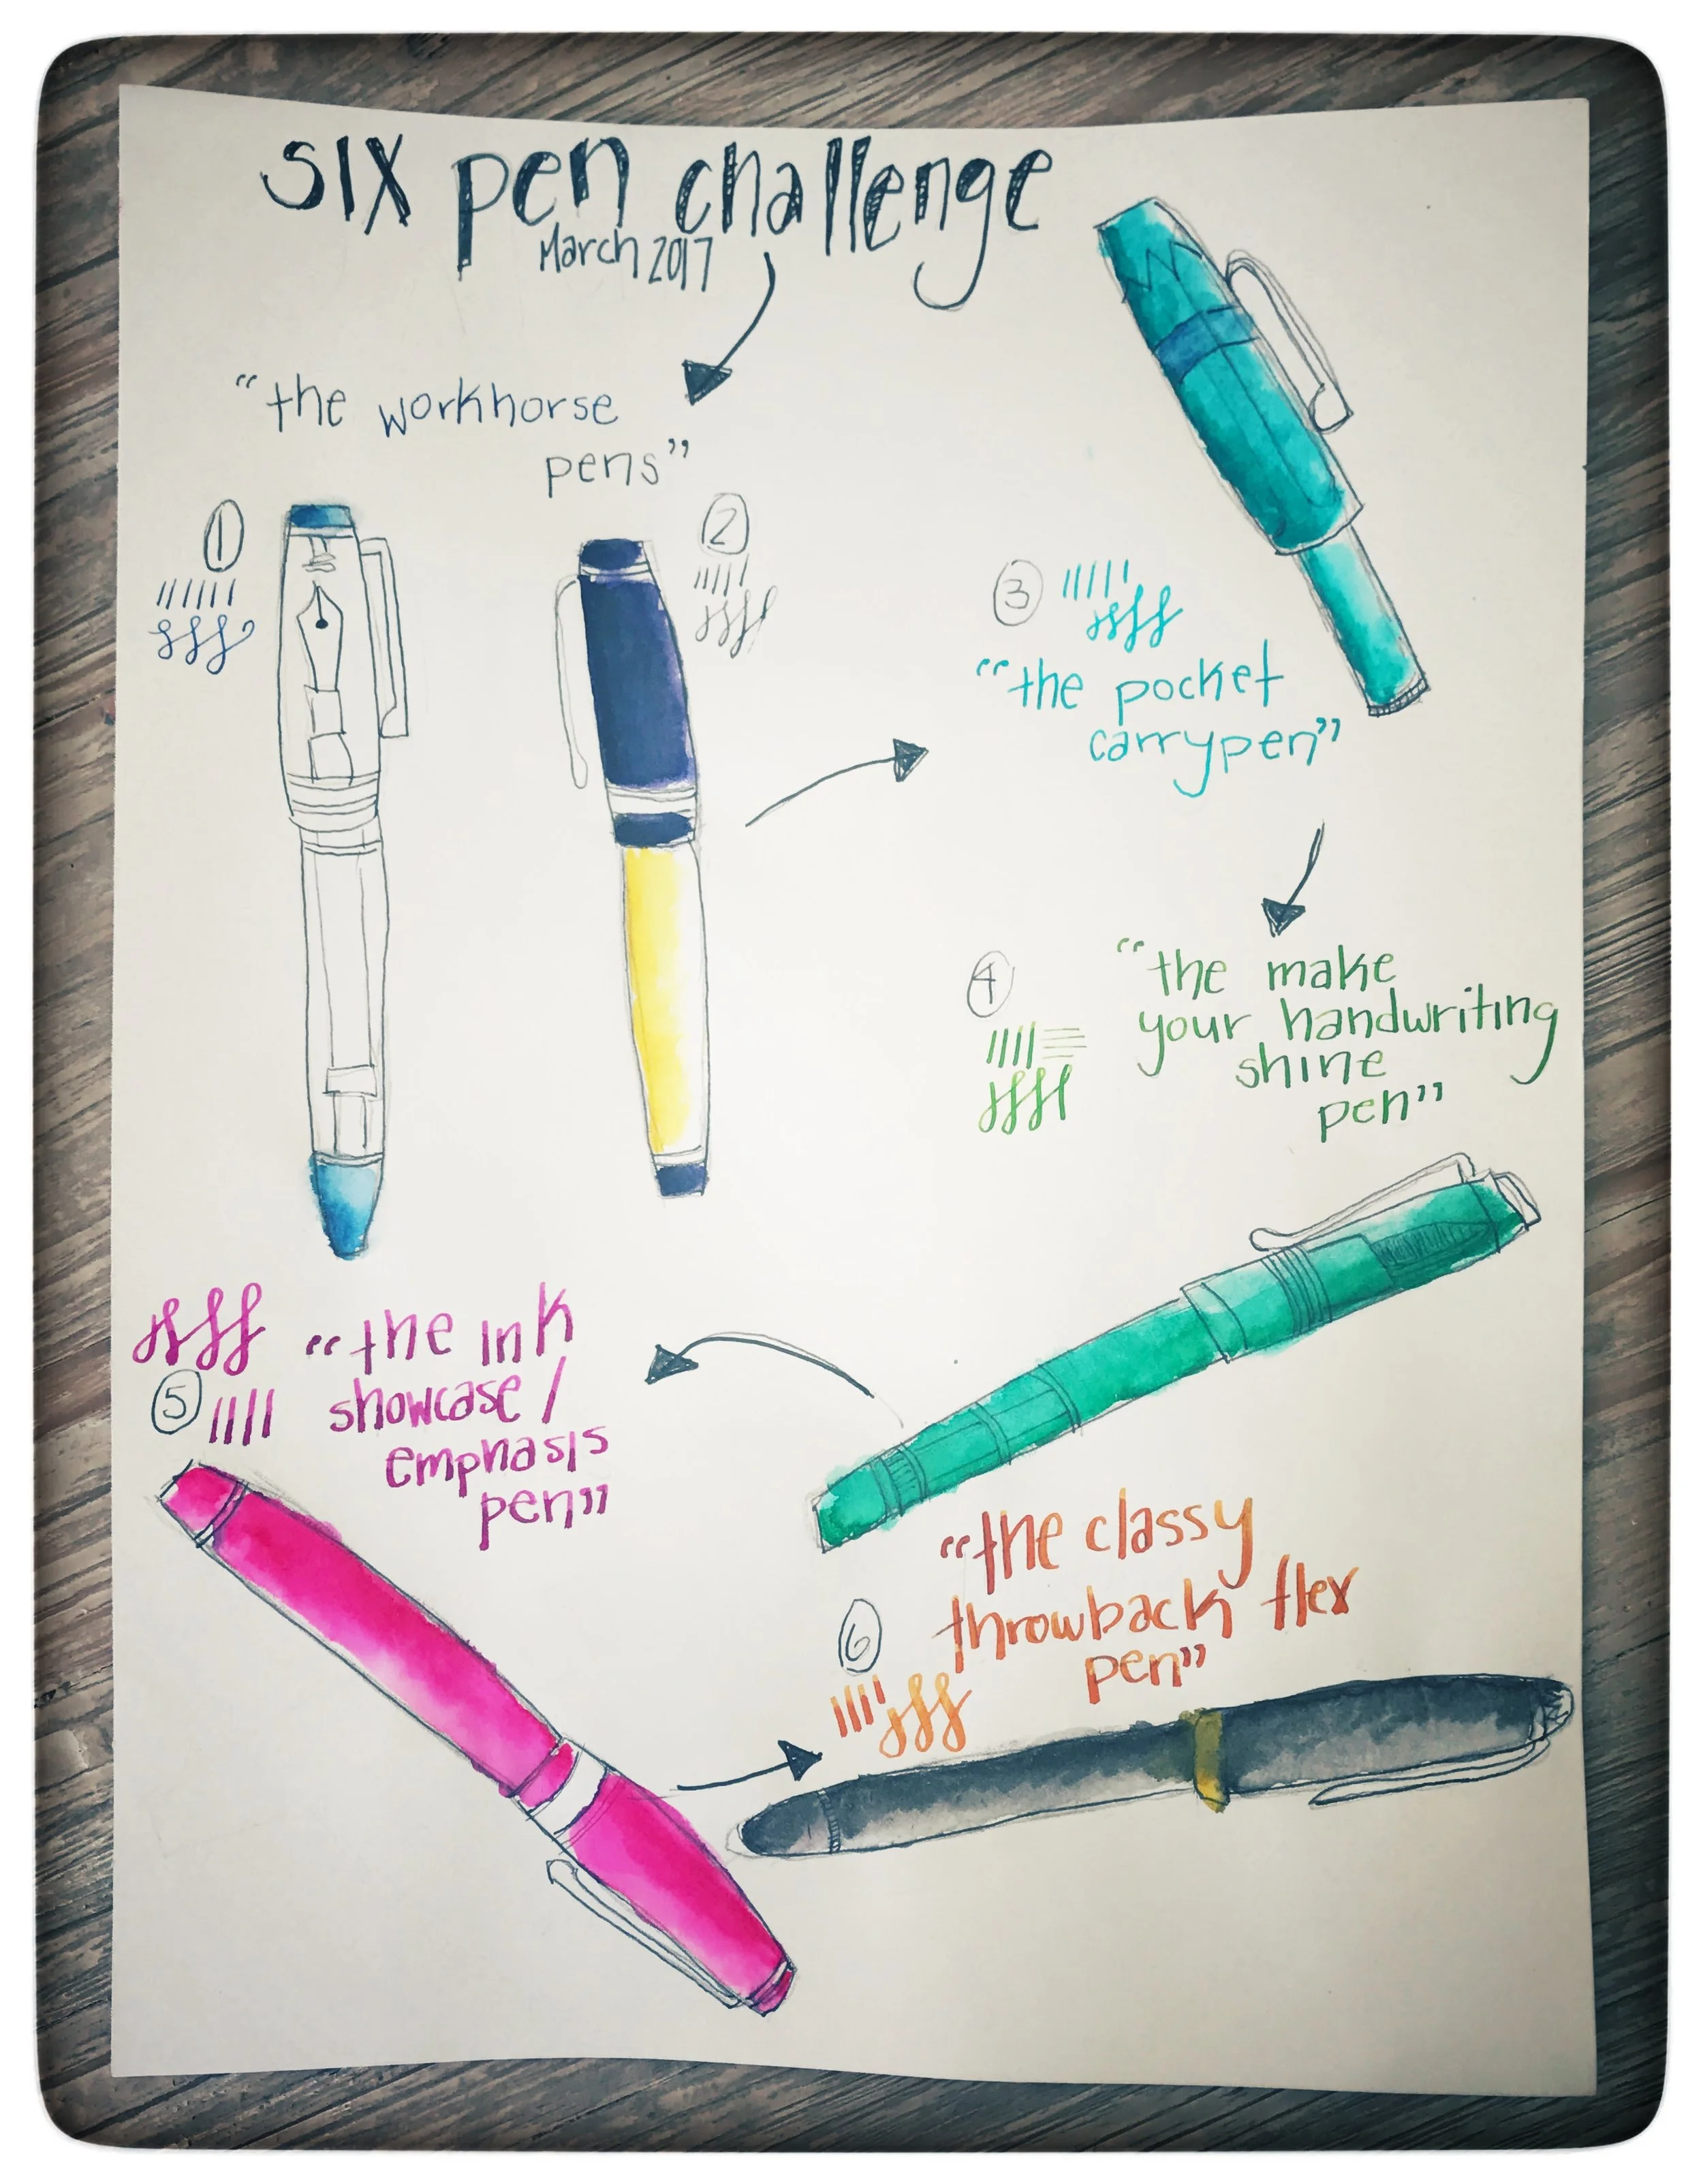 six pen challenge
March 2017
"the workhorse
pens"
1
2
3
"the pocket
carrypen"
4
"the make
your handwriting
shine
pen"
5
"the ink
showcase /
emphasis
pen"
6
"the classy
throwback flex
pen"